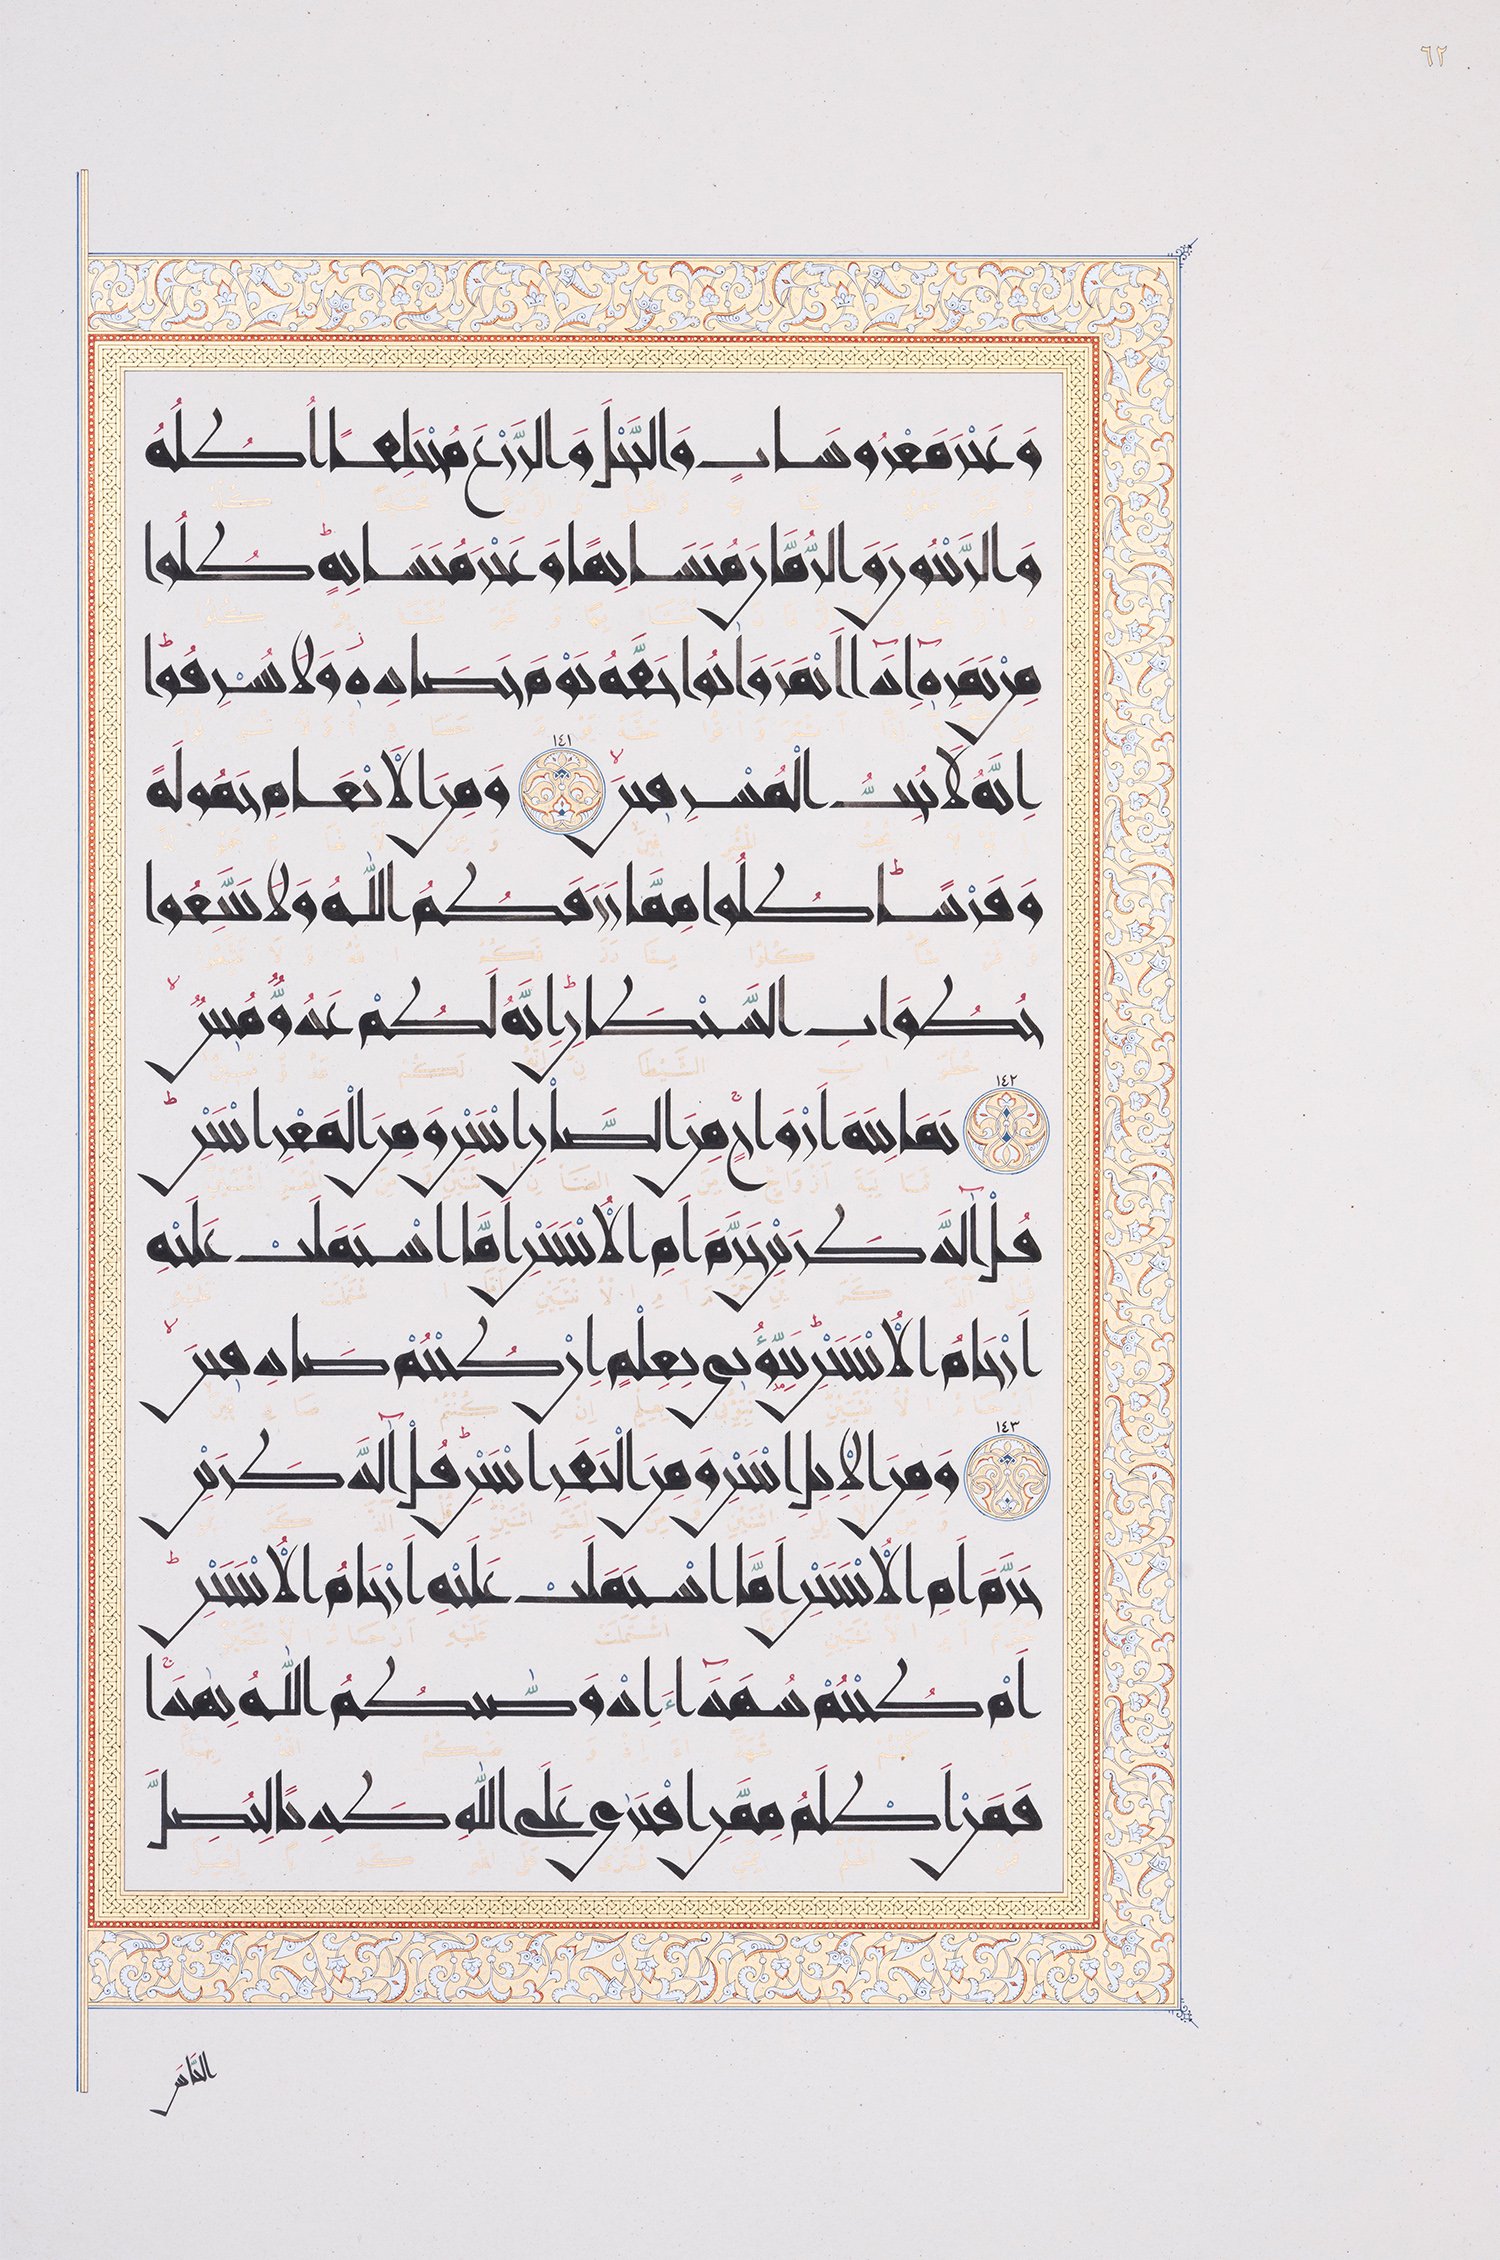 ٦٢
وَغَيْرَ مَعْرُوشَاتٍ وَالنَّخْلَ وَالزَّرْعَ مُخْتَلِفًا أُكُلُهُ
وَالزَّيْتُونَ وَالرُّمَّانَ مُتَشَابِهًا وَغَيْرَ مُتَشَابِهٍ كُلُوا
مِنْ ثَمَرِهِ إِذَا أَثْمَرَ وَاٰتُوا حَقَّهُ يَوْمَ حَصَادِهِ وَلَا تُسْرِفُوا
إِنَّهُ لَا يُحِبُّ الْمُسْرِفِينَ ١٤١ وَمِنَ الْأَنْعَامِ حَمُولَةً
وَفَرْشًا كُلُوا مِمَّا رَزَقَكُمُ اللّٰهُ وَلَا تَتَّبِعُوا
خُطُوَاتِ الشَّيْطَانِ إِنَّهُ لَكُمْ عَدُوٌّ مُبِينٌ
١٤٢ ثَمَانِيَةَ أَزْوَاجٍ مِنَ الضَّأْنِ اثْنَيْنِ وَمِنَ الْمَعْزِ اثْنَيْنِ
قُلْ اٰلذَّكَرَيْنِ حَرَّمَ أَمِ الْأُنْثَيَيْنِ أَمَّا اشْتَمَلَتْ عَلَيْهِ
أَرْحَامُ الْأُنْثَيَيْنِ نَبِّئُونِي بِعِلْمٍ إِنْ كُنْتُمْ صَادِقِينَ
١٤٣ وَمِنَ الْإِبِلِ اثْنَيْنِ وَمِنَ الْبَقَرِ اثْنَيْنِ قُلْ اٰلذَّكَرَيْنِ
حَرَّمَ أَمِ الْأُنْثَيَيْنِ أَمَّا اشْتَمَلَتْ عَلَيْهِ أَرْحَامُ الْأُنْثَيَيْنِ
أَمْ كُنْتُمْ شُهَدَاءَ إِذْ وَصّٰيكُمُ اللّٰهُ بِهٰذَا
فَمَنْ أَظْلَمُ مِمَّنِ افْتَرٰى عَلَى اللّٰهِ كَذِبًا لِيُضِلَّ
النَّاسَ